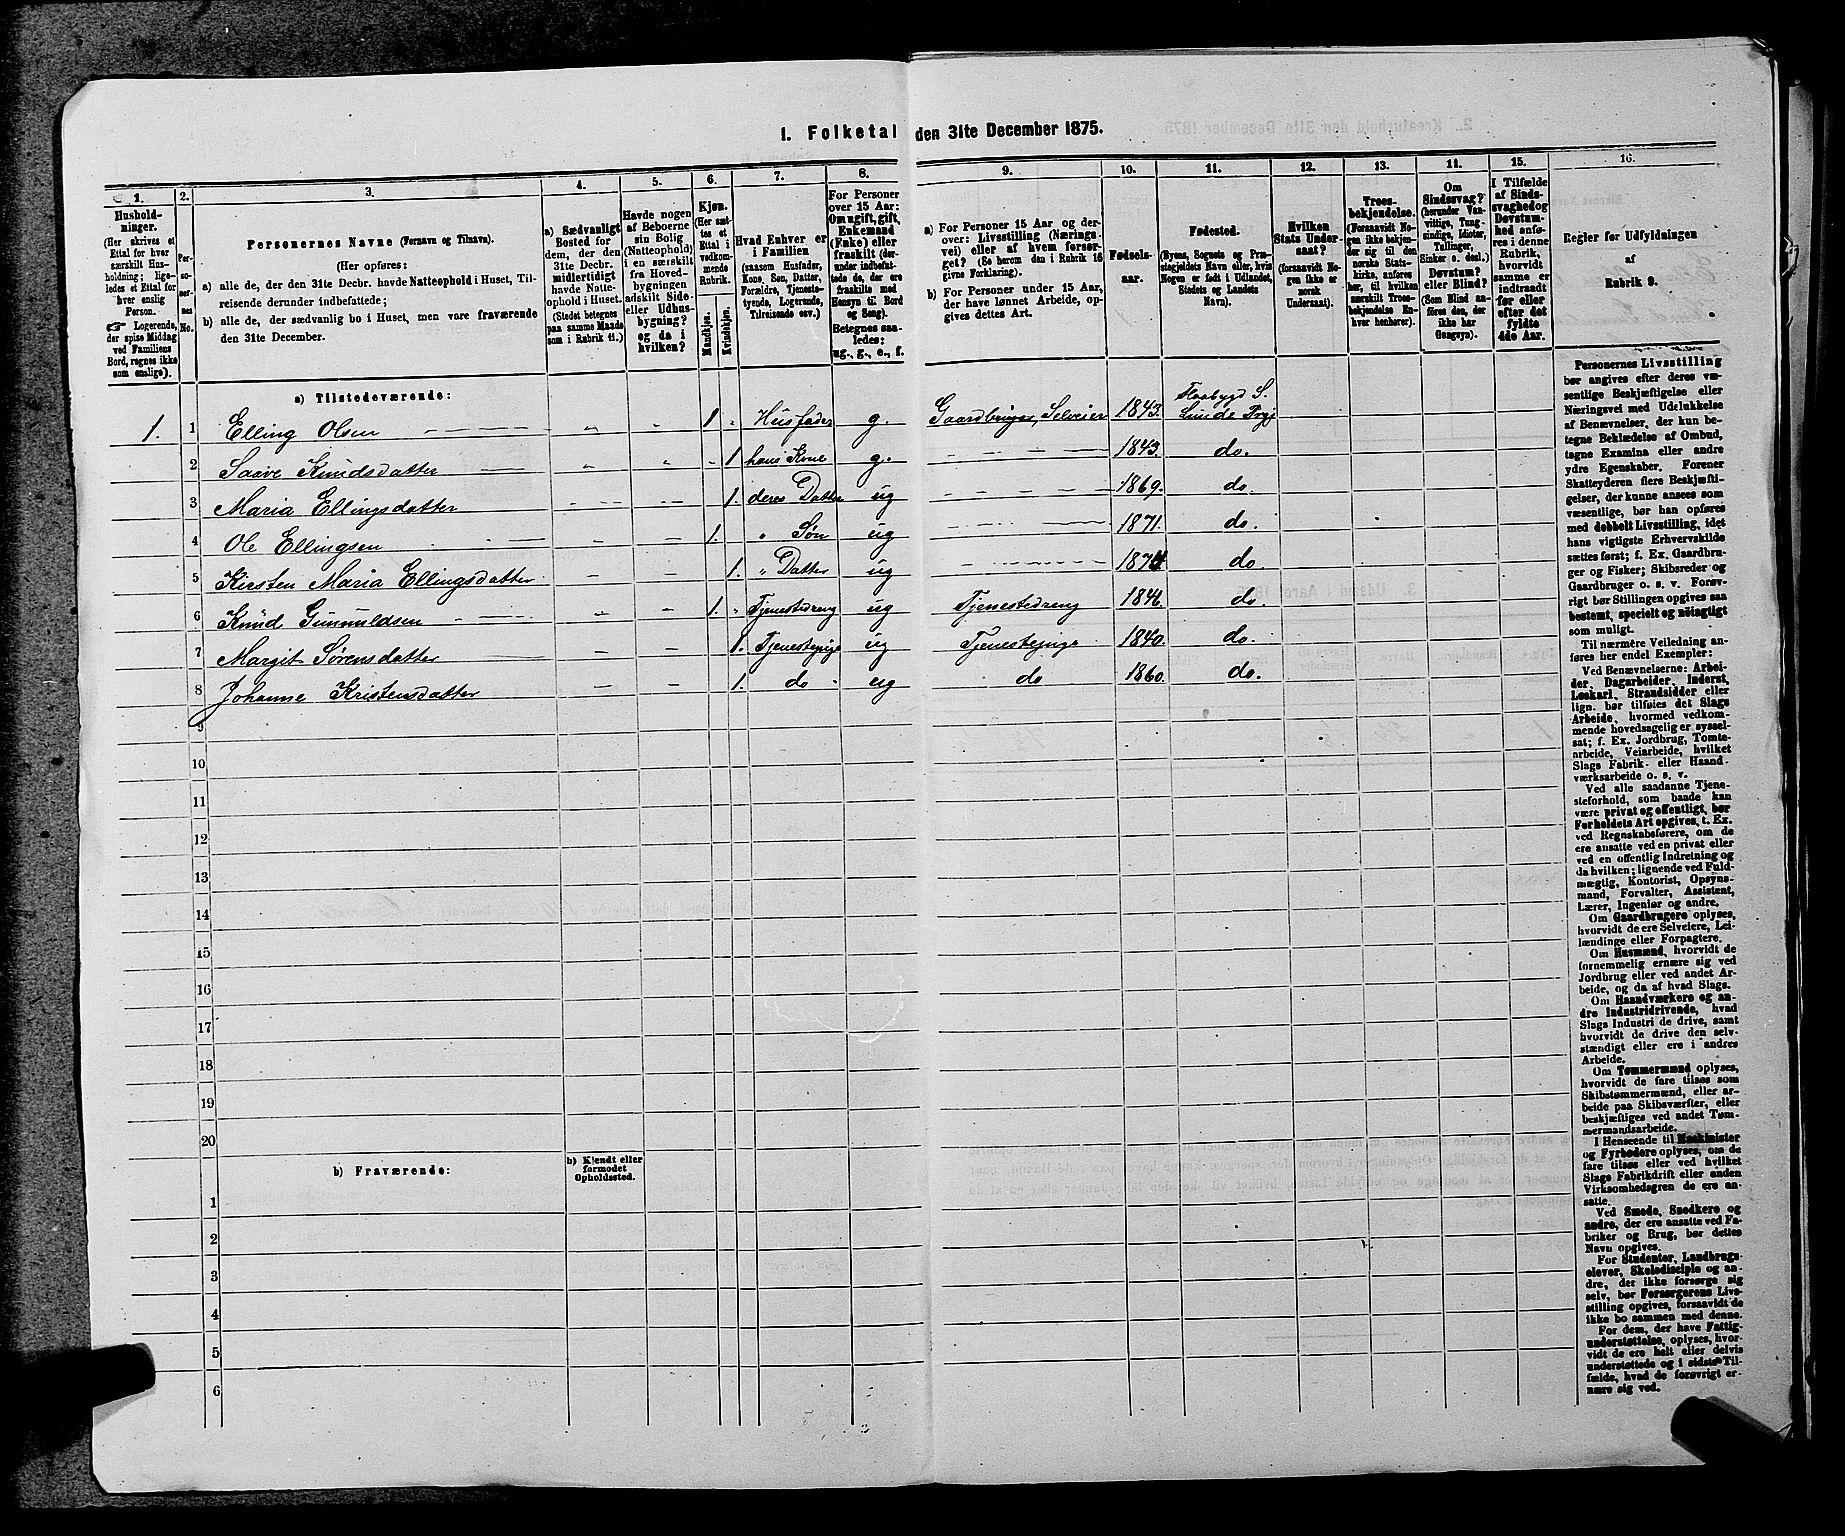 1. Folketal den 31te December 1875.
1. 2. 3. 4. 5. 6. 7. 8. 9. 10. 11. 12. 13. 14. 15. 16.
Hushold-
ninger.
(Her skrives et
Ettal for hver
særskilt Hus-
holdning; lige-
ledes et Ettal for
hver enslig
Person.
☞ Logerende,
der spise Middag
ved Familiens
Bord, regnes ikke
som enslige).
Per-
so-
ner-
nes
No.
Personernes Navne (Fornavn og Tilnavn).
(Her opføres:
a) alle de, der den 31te Decbr. havde Natteophold i Huset, Til-
reisende derunder indbefattede;
b) alle de, der sædvanlig bo i Huset, men vare fraværende
den 31te December.
a) Sædvanligt
Bosted for
dem, der den
31te Decbr.
midlertidigt
havde Natte-
ophold i Huset.
(Stedet betegnes
paa samme Maade
som i Rubrik 11.)
Havde nogen
af Beboerne
sin Bolig
(Natteophold)
i en særskilt
fra Hoved-
bygningen
adskilt Side-
eller Udhus-
bygning?
og da i
hvilken?
Kjøn.
(Her sæt-
tes et
Ettal i
vedkom-
mende
Rubrik.
Mandkjøn.
Kvindekjøn.
Hvad Enhver er
i Familien
(saasom Husfader,
Kone, Søn, Datter,
Forældre, Tjeneste-
tyende, Logerende,
Tilreisende osv.)
For Personer
over 15 Aar:
Om ugift, gift,
Enkemand
(Enke) eller
fraskilt (der-
under indbefat-
tede de, der ere
fraskilte med
Hensyn til Bord
og Seng).
Betegnes saa-
ledes:
ug., g., e., f.
a) For Personer 15 Aar og der-
over: Livsstilling (Nærings-
vei) eller af hvem forsør-
get? (Se herom den i Rubrik 16
givne Forklaring).
b) For Personer under 15 Aar,
der have lønnet Arbeide, op-
gives dettes Art.
Fødsels-
aar.
Fødested.
(Byens, Sognets og Præ-
stegjeldets Navn eller, hvis
Nogen er født i Udlandet,
Stedets og Landets
Navn).
Hvilken
Stats Under-
saat?
(forsaavidt No-
gen ikke er
norsk
Undersaat).
Troes-
bekjendelse.
(Forsaavidt No-
gen ikke bekjen-
der sig til den
norske Stats-
kirke, anføres
her, til hvilken
særskilt Troes-
bekjendelse En-
hver henhører).
Om
Sindssvag?
(herunder Van-
vittige, Tung-
sindige, Idioter,
Tullinger,
Sinker o. desl.)
Døvstum?
eller Blind?
(Som Blind an-
føres den, der
ikke har
Gangsyn).
I Tilfælde
af Sinds-
svaghed og
Døvstum-
hed anfø-
res i denne
Rubrik,
hvorvidt
samme er
indtraadt
før eller
efter det
fyldte
4de Aar.
Regler for Udfyldningen
af
Rubrik 9.
a) Tilstedeværende:
1. 1 Elling Olsen - - 1 " Husfader g. Gaardbruger, Selveier 1843. Flaabygd S. Lunde Prgj
2 Saave Knudsdatter - - - 1 hans Kone g. 1843. do.
3 Maria Ellingsdatter 1. deres Datter ug 1869. do
4 Ole Ellingsen 1. " Søn ug 1871. do.
5 Kirsten Maria Ellingsdatter 1. " Datter ug 1874 do.
6 Knud Gunnuldsen 1. " Tjenestedreng ug Tjenestedreng 1846. do.
7 Margit Sørensdatter 1. Tjenestepige ug Tjenestepige 1840. do.
8 Johanne Kristensdatter 1. do ug do 1860. do.
9
10
11
12
13
14
15
16
17
18
19
20
b) Fraværende:
b) Kjendt eller
formodet
Opholdssted.
1
2
3
4
5
6
Personernes Livsstilling
bør angives efter deres væ-
sentlige Beskjæftigelse eller
Næringsvei med Udelukkelse
af Benævnelser, der kun be-
tegne Beklædelse af Ombud,
tagne Examina eller andre
ydre Egenskaber. Forener
Skatteyderen flere Beskjæfti-
gelser, der kunne ansees som
væsentlige, bør han opføres
med dobbelt Livsstilling, idet
hans vigtigste Erhvervskilde
sættes først; f. Ex. Gaardbru-
ger og Fisker; Skibsreder og
Gaardbruger o. s. v. Forøv-
rigt bør Stillingen opgives saa
bestemt, specielt og nöiagtigt
som muligt.
Til nærmere Veiledning an-
føres her endel Exempler:
Ved Benævnelserne: Arbei-
der, Dagarbeider, Inderst,
Løskarl, Strandsidder eller
lign. bør tilføies det Slags
Arbeide, hvormed vedkom-
mende hovedsagelig er syssel-
sat; f. Ex. Jordbrug, Tomte-
arbeide, Veiarbeide, hvilket
Slags Fabrik- eller Haand-
værksarbeide o. s. v.
Ved alle saadanne Tjene-
steforhold, som baade kan
være privat og offentligt, bør
Forholdets Art opgives, t. Ex.
ved Regnskabsførere, om de
ere ansatte ved en privat eller
ved en offentlig Indretning og
da hvilken; lignende ved Fuld-
mægtig, Kontorist, Opsyns-
mand, Forvalter, Assistent,
Lærer, Ingeniør og andre.
Om Gaardbrugere oplyses,
hvorvidt de ere Selveiere, Lei-
lændinge eller Forpagtere.
Om Husmænd, hvorvidt de
fornemmelig ernære sig ved
Jordbrug eller ved andet Ar-
beide, og da af hvad Slags.
Om Haandværkere og an-
dre Industridrivende, hvad
Slags Industri de drive, samt
hvorvidt de drive den selv-
stændigt eller ere i andres
Arbeide.
Om Tømmermænd oplyses,
hvorvidt de fare tilsøs som
Skibstømmermænd, eller ar-
beide paa Skibsværfter, eller
beskjæftiges ved andet Tøm-
mermandsarbeide.
I Henseende til Maskinister
og Fyrbødere oplyses, om de
fare tilsøs eller ved hvilket
Slags Fabrikdrift eller anden
Virksomhedsgren de ere an-
satte.
Ved Smede, Snedkere og
andre, der ere ansatte ved Fa-
briker og Brug, bør dettes
Navn opgives.
For Studenter, Landbrugs-
elever, Skoledisciple og an-
dre, der ikke forsørge sig
selv, bør Forsørgerens Livs-
stilling opgives, forsaavidt de
ikke bo sammen med denne.
For dem, der have Fattig-
understøttelse, oplyses, hvor-
vidt de ere helt eller delvis
understøttede og i sidste Til-
fælde, hvad de forøvrigt er-
nære sig ved.